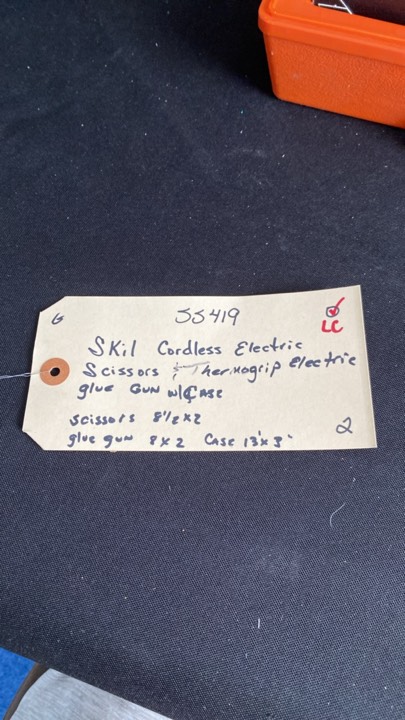 G
SS419
LC
SKil Cordless Electric
Scissors & Thermogrip Electric
glue GUN w/CASE
scissors 8 1/2 x 2
glue gun 8 x 2 CASE 13' x 3'
2